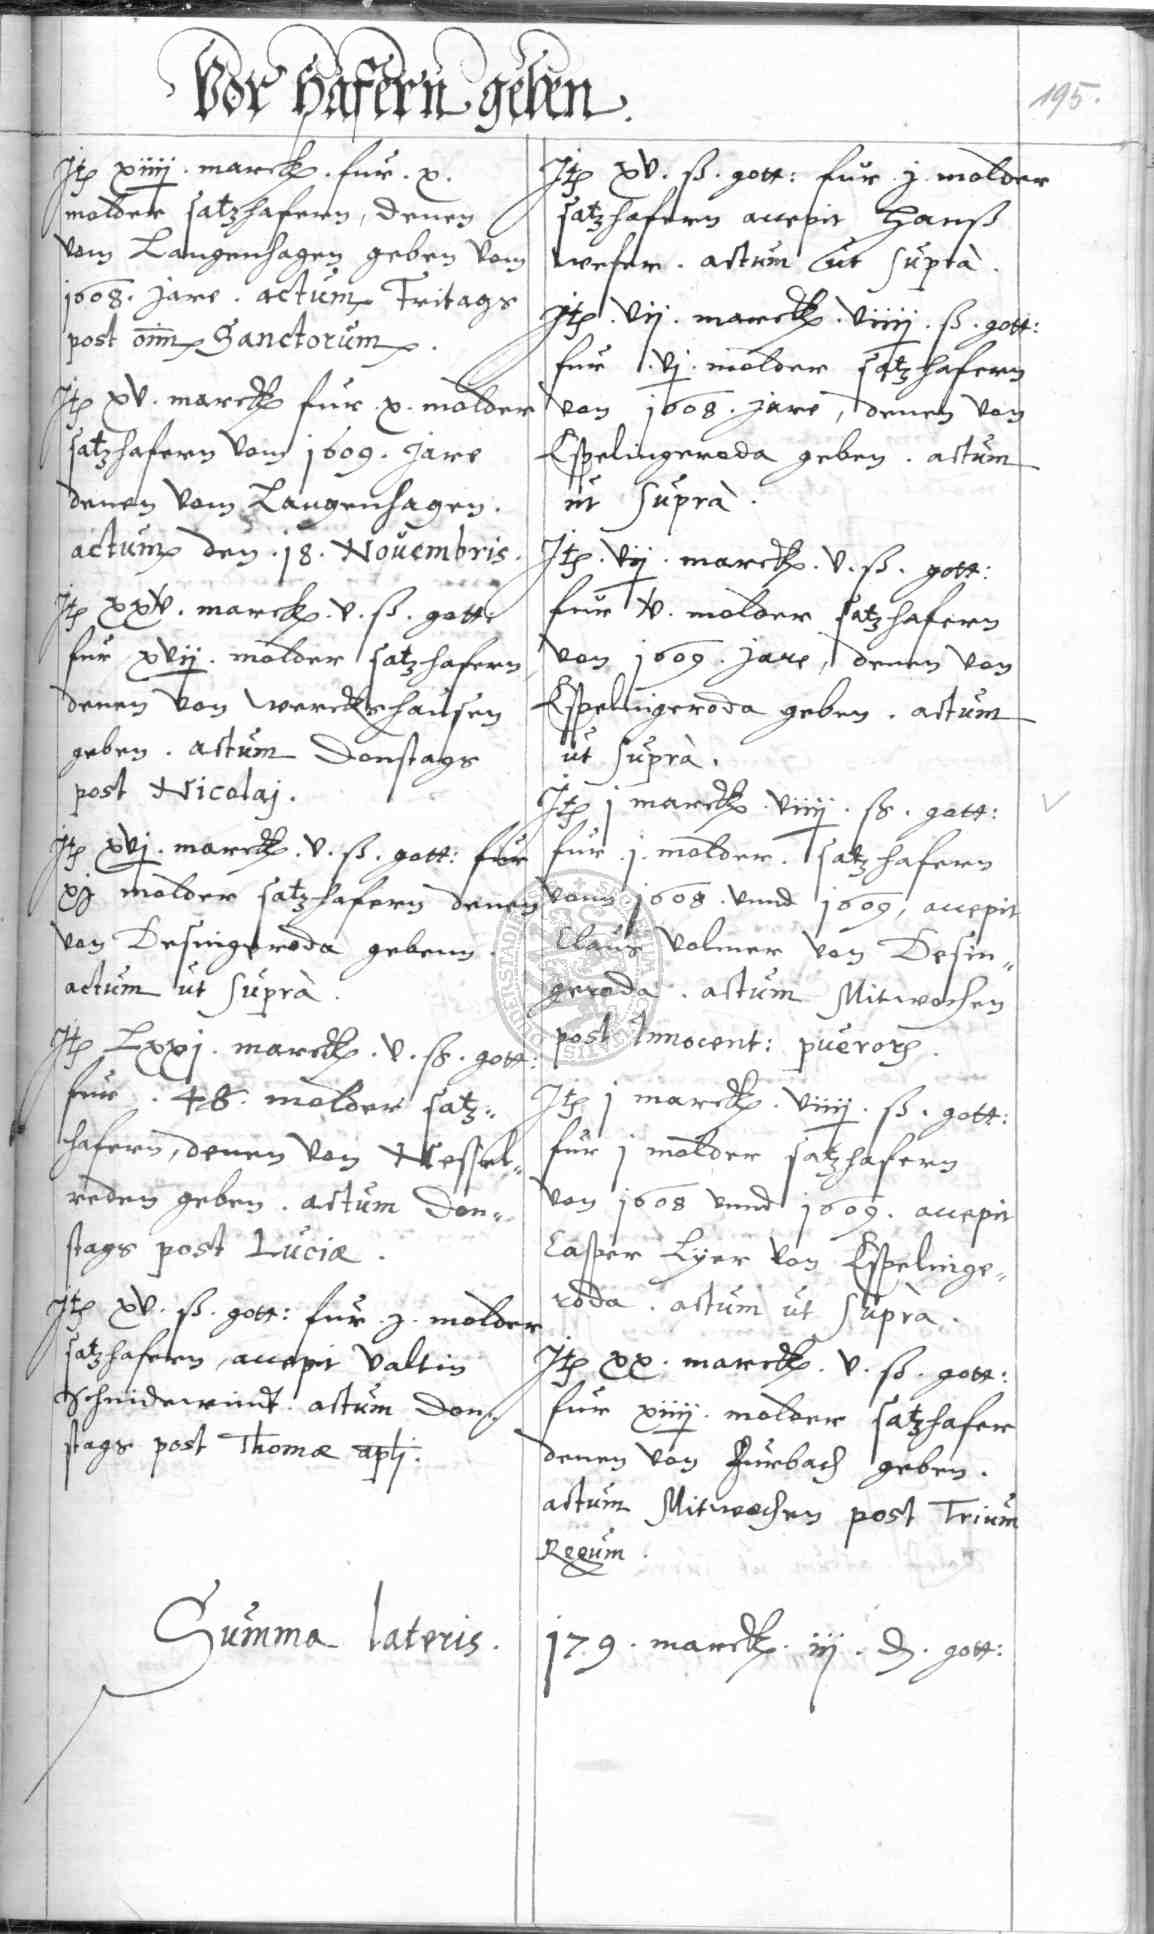 Vor Hafern geben.
195.
Jtē xiiij. marck. fur. x.
molder satzhafern, denen
vom Langenhagen geben vom
1608. jare. actum Fritags
post om̄ Sanctorum.
Jtē xv. marck fur x. molder
satzhafern vom 1609. jare
denen vom Langenhagen.
actum den. 18. Nouembris.
Jtē xxv. marck. v. ß. gott:
fur xvij. molder satzhafern,
denen von Werckshausen
geben. actum Donstags
post Nicolaj.
Jtē xvj. marck. v. ß. gott: fur
xj molder satzhafern denen
von Desingeroda gebenn.
actum ut suprà.
Jtē Lxxj. marck. v. ß. gott:
fur. 48. molder satz„
hafern, denen von Nessel„
reden geben. actum Don„
stags post Luciæ.
Jtē xv. ß. gott: fur j. molder
satzhafern, accepit Valtin
Schnidewindt. actum Don„
stags post Thomæ aptj.
Jtē xv. ß. gott: fur j. molder
satzhafern accepit Hanß
Wefer. actum ut suprà.
Jtē. vij. marck. viiij. ß. gott:
fur. vj. molder satzhafern
von 1608. jare, denen von
Espelingeroda geben. actum
ut suprà.
Jtē. vij. marck. v. ß. gott:
fur v. molder satzhafern
von 1609. jare, denen von
Espelingeroda geben. actum
ut suprà.
Jtē j marck. viiij. ß. gott:
fur. j. molder. satzhafern
vonn 1608. vnnd 1609, accepit
Claus Volmer von Desin„
geroda. actum Mitwochen
post Innocent: puerorē.
Jtē j marck. viiij. ß. gott:
fur j molder satzhafern
von 1608 vnnd 1609. accepit
Casper Lyer von Espelinge„
roda. actum ut suprà.
Jtē xx. marck. v. ß. gott:
fur xiiij. molder satzhafer
denen von Furbach geben.
actum Mitwochen post Trium
Regum.
Summa lateris. 179. marck. iij. ₰. gott: